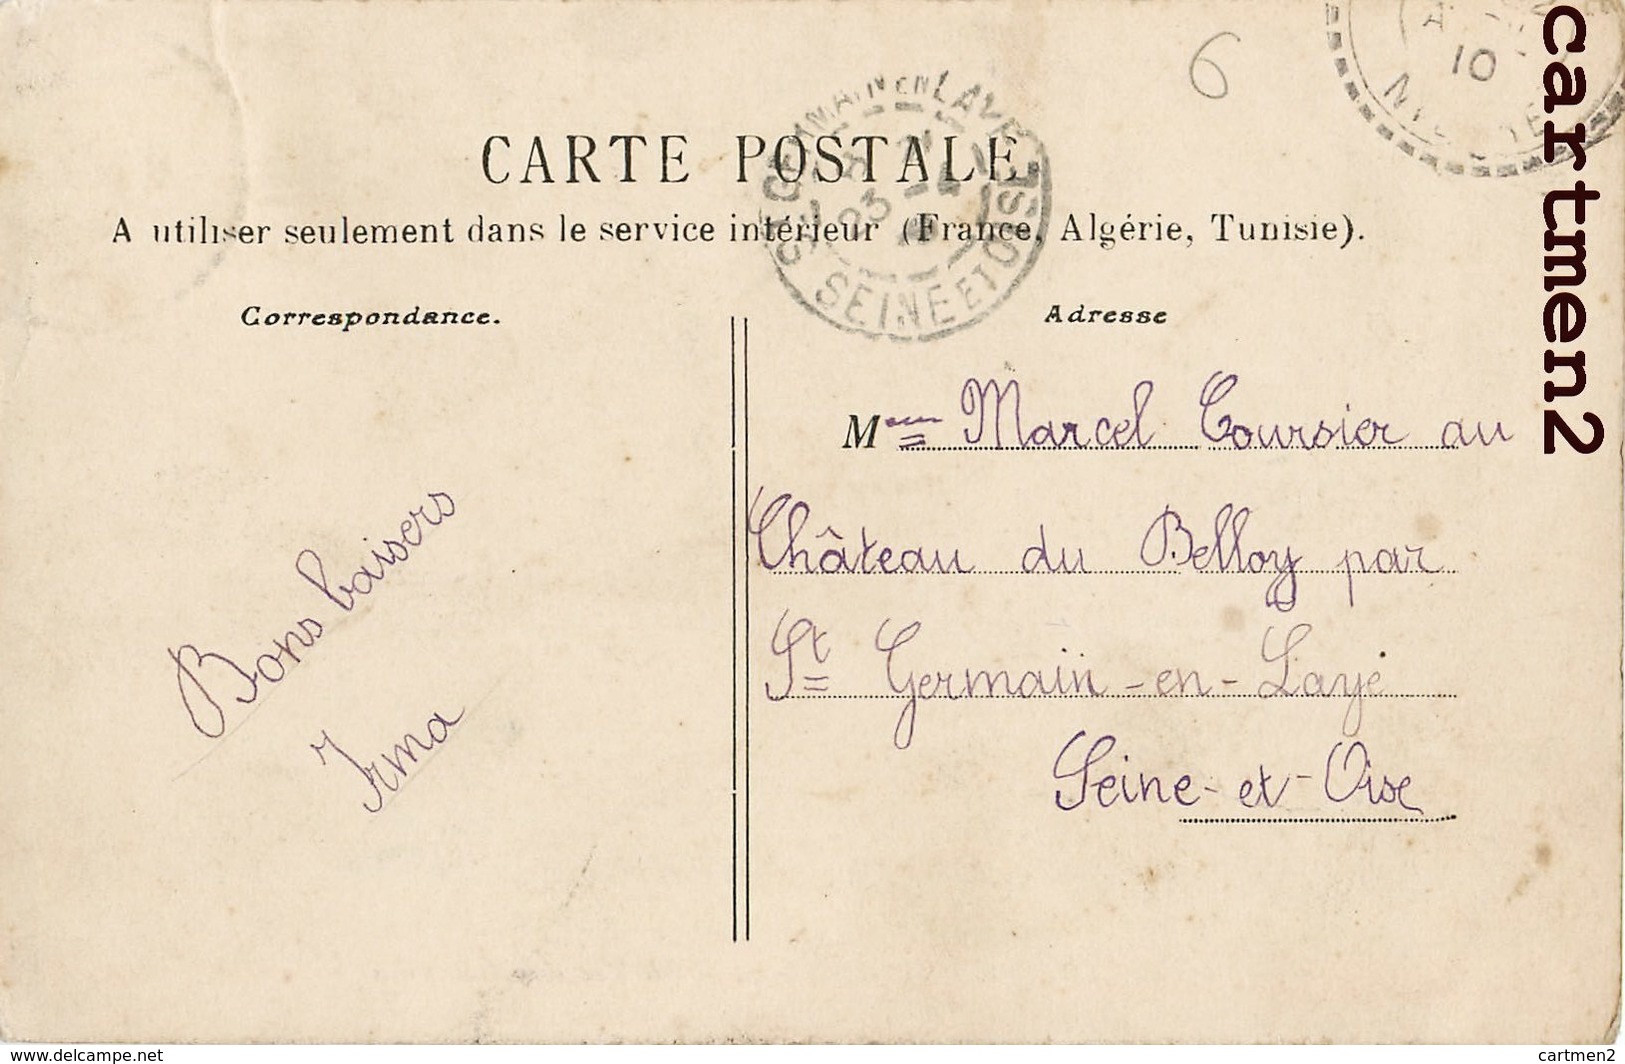 6
10
ST GERMAIN EN LAYE
23
SEINE ET OISE
CARTE POSTALE
A utiliser seulement dans le service intérieur (France, Algérie, Tunisie).
Correspondance.
Bons baisers
Irma
Adresse
Mme Marcel Coursier au
Château du Belloy par
St Germain-en-Laye
Seine-et-Oise
cartmen2
www.delcampe.net
cartmen2